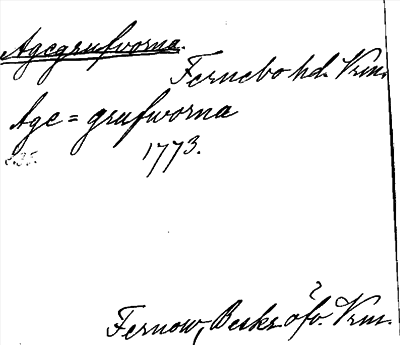 Agegrufvorna.
Fernebo hd. Vrm.
Age = grufvorna
1773.
Fernow, Beskr. öfv. Vrm.